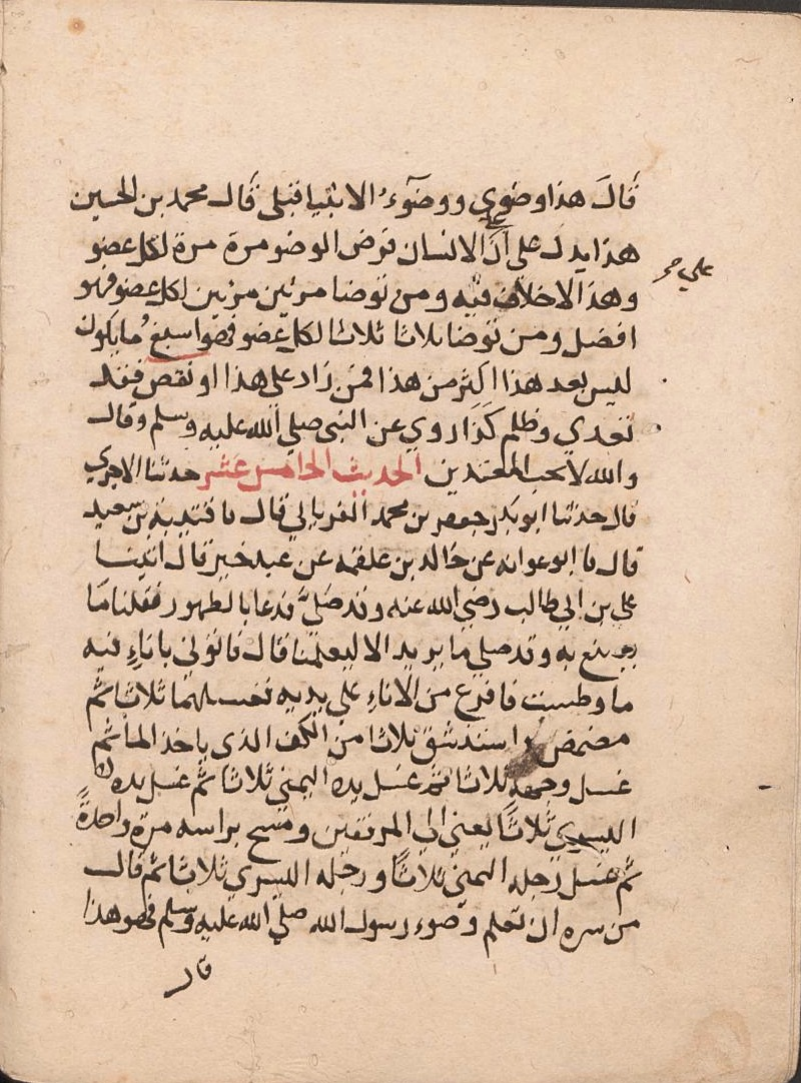 قال هذا وضوي ووضوء الانبيا قبلي قال محمد بن الحسين
هذا يدل على ان الانسان فرض الوضو مرة مرة لكل عضو
على
وهذا لا خلاف فيه ومن توضا مرتين مرتين لكل عضو فهو
افضل ومن توضا ثلاثا ثلاثا لكل عضو فهو اسبغ ما يكون
ليس بعد هذا اكثر من هذا فمن زاد على هذا او نقص فقد
تعدي وظلم كذا روي عن النبي صلي الله عليه وسلم وقال
والله لا يحب المعتدين الحديث الخامس عشر حدثنا الاجري
قال حدثنا ابو بكر جعفر بن محمد الفريابي قال نا قتيبة بن سعيد
قال نا ابو عوانه عن خالد بن علقمه عن عبد خير قال اتينا
علي بن ابي طالب رضي الله عنه وقد صلي فدعا بالطهور فقلنا ما
يصنع به وقد صلي ما يريد الا ليعلمنا قال فاتوني باناء فيه
ما وطست فافرغ من الاناء علي يديه فغسلهما ثلاثا ثم
مضمض واستنشق ثلاثا من الكف الذي ياخذ الما ثم
غسل وجهه ثلاثا ثم غسل يده اليمني ثلاثا ثم غسل يده
اليسري ثلاثا يعني الي المرفقين ومسح براسه مرة واحدة
ثم غسل رجله اليمني ثلاثا ورجله اليسري ثلاثا ثم قال
من سره ان تعلم وضوء رسول الله صلي الله عليه وسلم فهو هذا